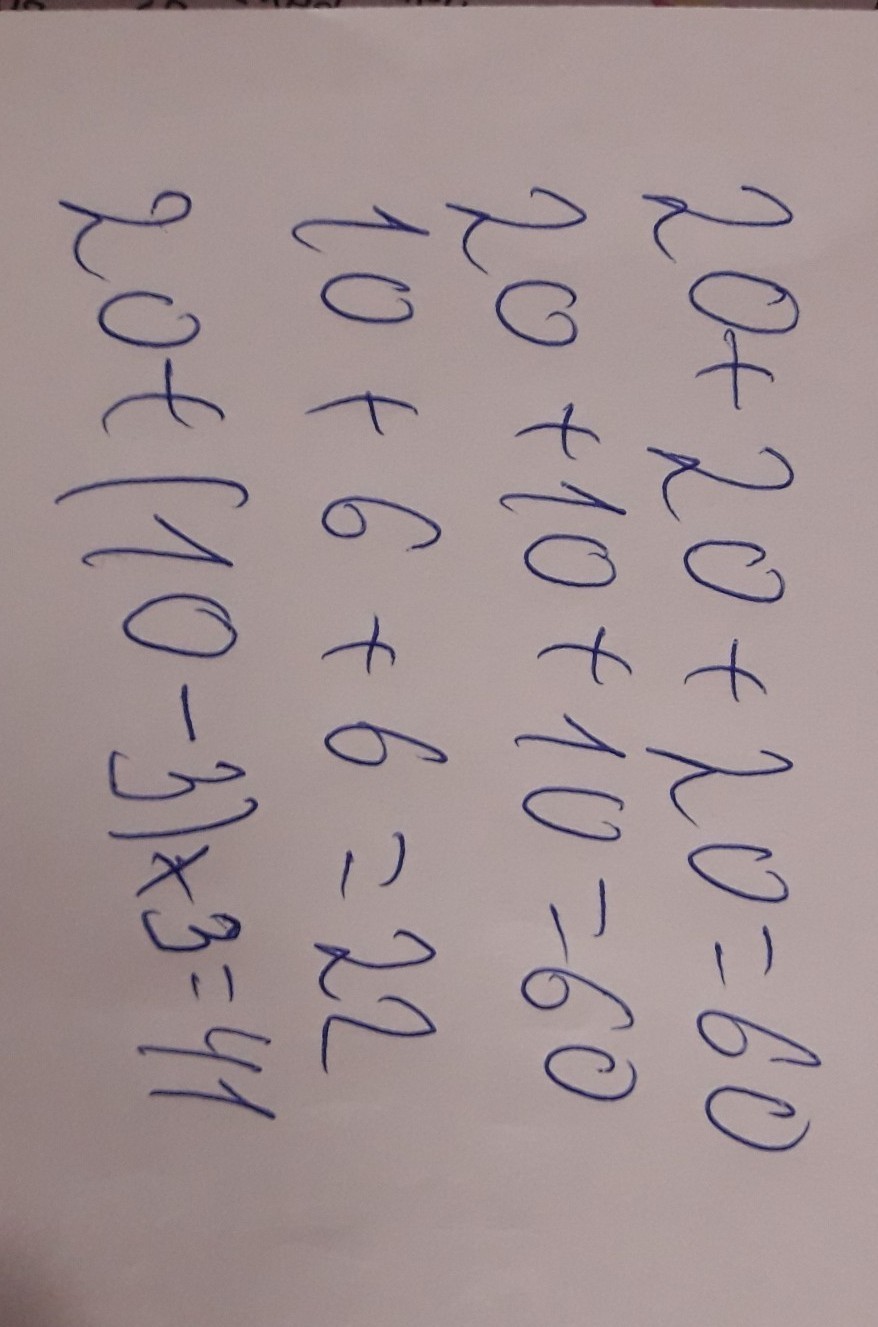 20+20+20=60
20+10+10=60
10+6+6=22
20+(10-3)×3=41